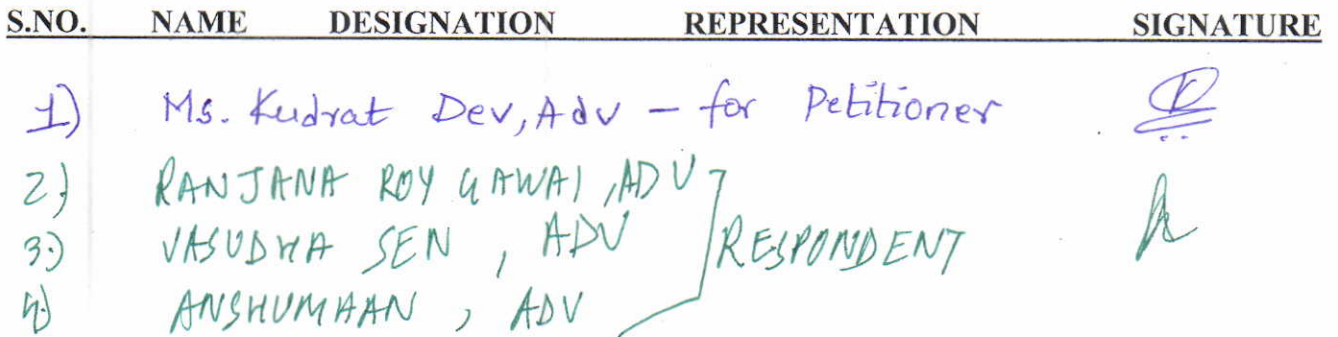 S.NO. NAME DESIGNATION REPRESENTATION SIGNATURE
1) Ms. Kudrat Dev, Adv - for Petitioner
2) RANJANA ROY GAWAI, ADV
3.) VASUDHA SEN, ADV RESPONDENT
4.) ANSHUMAAN, ADV